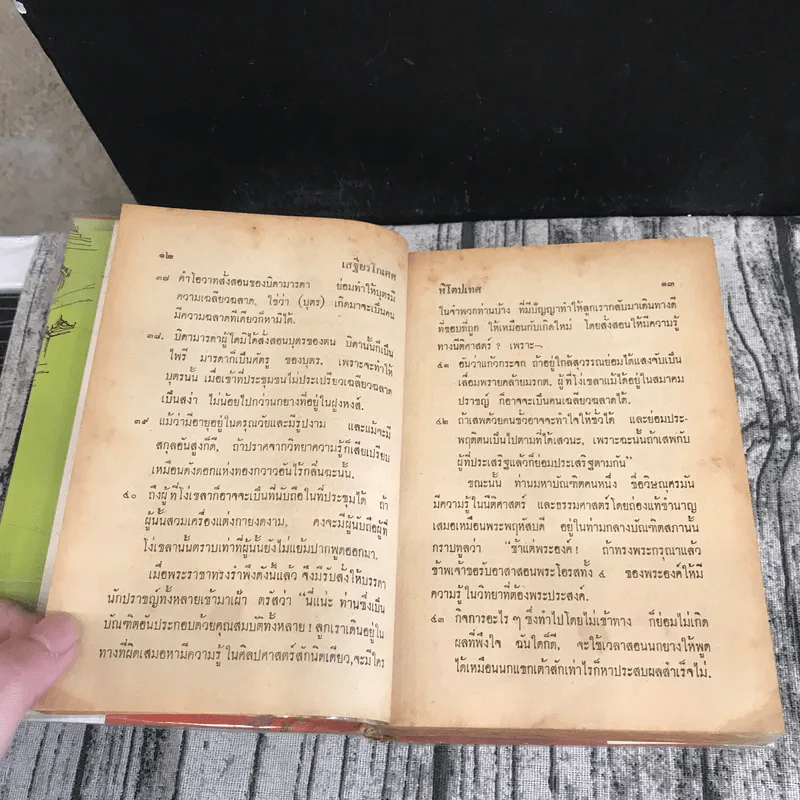 ๑๒
เสฐียรโกเศศ
๓๗ คำโอวาทสั่งสอนของบิดามารดา ย่อมทำให้บุตรมี
ความเฉลียวฉลาด, ใช่ว่า (บุตร) เกิดมาจะเป็นคน
มีความฉลาดทีเดียวก็หามิได้.
๓๘. บิดามารดาผู้ใดมิได้สั่งสอนบุตรของตน บิดานั้นก็เป็น
ไพรี มารดาก็เป็นศัตรู ของบุตร, เพราะจะทำให้
บุตรนั้น เมื่อเข้าที่ประชุมชนไม่ประเปรียวเฉลียวฉลาด
เป็นสง่า ไม่น้อยไปกว่านกยางที่อยู่ในฝูงหงส์.
๓๙ แม้ว่ามีอายุอยู่ในดรุณวัยและมีรูปงาม และแม้จะมี
สกุลอันสูงก็ดี, ถ้าปราศจากวิทยาความรู้ก็เสียเปรียบ
เหมือนดังดอกแห่งทองกวาวอันไร้กลิ่นฉะนั้น.
๔๐ ถึงผู้ที่โง่เขลาก็อาจจะเป็นที่นับถือในที่ประชุมได้ ถ้า
ผู้นั้นสวมเครื่องแต่งกายงดงาม, คงจะมีผู้นับถือผู้ที่
โง่เขลานั้นตราบเท่าที่ผู้นั้นยังไม่แย้มปากพูดออกมา.
เมื่อพระราชาทรงรำพึงดังนี้แล้ว จึงมีรับสั่งให้บรรดา
นักปราชญ์ทั้งหลายเข้ามาเฝ้า ตรัสว่า “นี่แน่ะ ท่านซึ่งเป็น
บัณฑิตอันประกอบด้วยคุณสมบัติทั้งหลาย! ลูกเราเดินอยู่ใน
ทางที่ผิดเสมอหามีความรู้ในศิลปศาสตร์สักนิดเดียว, จะมีใคร
หิโตปเทศ
๑๓
ในจำพวกท่านบ้าง ที่มีปัญญาทำให้ลูกเรากลับมาเดินทางดี
ที่ชอบที่ถูก ให้เหมือนกับเกิดใหม่ โดยสั่งสอนให้มีความรู้
ทางนีติศาสตร์? เพราะ–
๔๑ อันว่าแก้วกระจก ถ้าอยู่ใกล้สุวรรณย่อมได้แสงจับเป็น
เลื่อมพรายคล้ายมรกต, ผู้ที่โง่เขลาแม้ได้อยู่ในสมาคม
ปราชญ์ ก็อาจจะเป็นคนเฉลียวฉลาดได้.
๔๒ ถ้าเสพด้วยคนชั่วอาจจะทำใจให้ชั่วได้ และย่อมประ-
พฤติตนเป็นไปตามที่ได้เสวนะ, เพราะฉะนั้นถ้าเสพกับ
ผู้ที่ประเสริฐแล้วก็ย่อมประเสริฐตามกัน”
ขณะนั้น ท่านมหาบัณฑิตคนหนึ่ง ชื่อวิษณุศรมัน
มีความรู้ในนีติศาสตร์ และธรรมศาสตร์โดยถ่องแท้ชำนาญ
เสมอเหมือนพระพฤหัสบดี อยู่ในท่ามกลางบัณฑิตสภานั้น
กราบทูลว่า “ข้าแต่พระองค์! ถ้าทรงพระกรุณาแล้ว
ข้าพเจ้าขอรับอาสาสอนพระโอรสทั้ง ๔ ของพระองค์ให้มี
ความรู้ในวิทยาที่ต้องพระประสงค์.
๔๓ กิจการอะไร ๆ ซึ่งทำไปโดยไม่เข้าทาง ก็ย่อมไม่เกิด
ผลที่พึงใจ ฉันใดก็ดี, จะใช้เวลาสอนนกยางให้พูด
ได้เหมือนนกแขกเต้าสักเท่าไรก็หาประสบผลสำเร็จไม่.